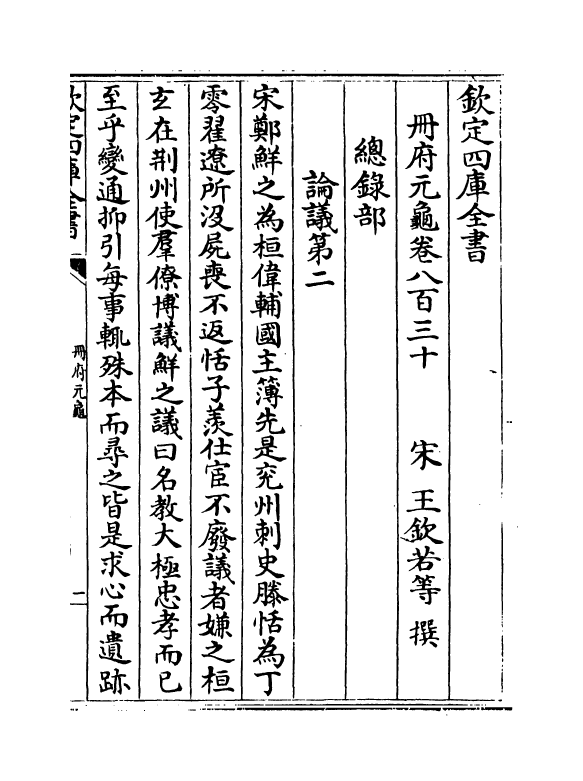 欽定四庫全書
冊府元龜卷八百三十　　宋　王欽若等　撰
總錄部
論議第二
宋鄭鮮之為桓偉輔國主簿先是兖州刺史滕恬為丁
零翟遼所沒屍喪不返恬子羨仕宦不廢議者嫌之桓
玄在荆州使羣僚博議鮮之議曰名教大極忠孝而已
至乎變通抑引每事輒殊本而尋之皆是求心而遺跡
欽定四庫全書
冊府元龜
二